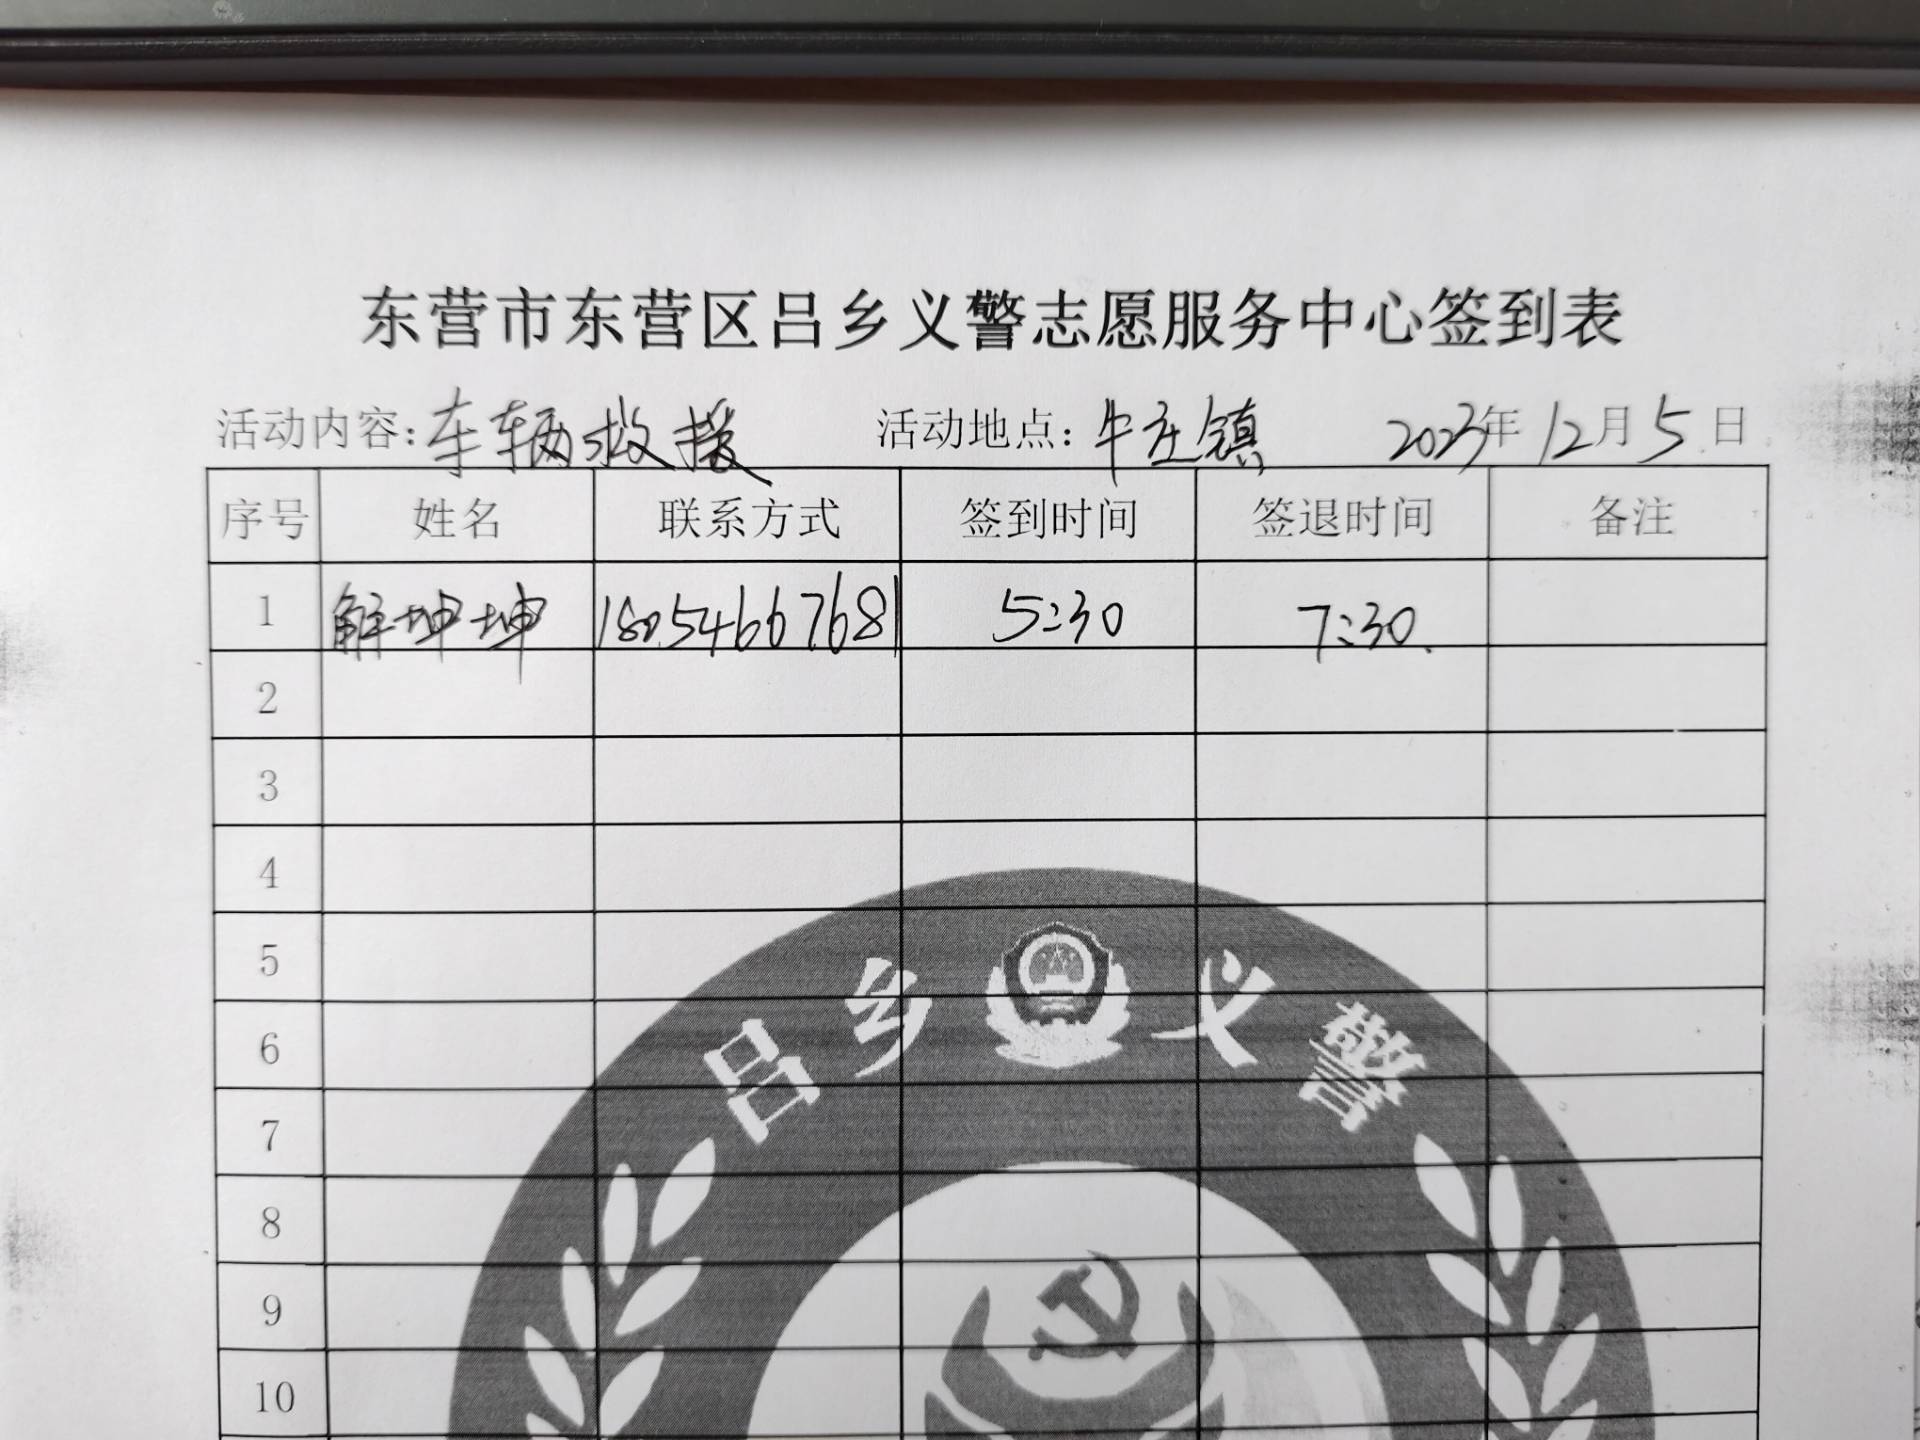 东营市东营区吕乡义警志愿服务中心签到表
活动内容:车辆救援 活动地点:牛庄镇 2023年12月5日
序号 姓名 联系方式 签到时间 签退时间 备注
1 解坤坤 18054667681 5:30 7:30
2
3
4
5
6
7
8
9
10
吕乡义警